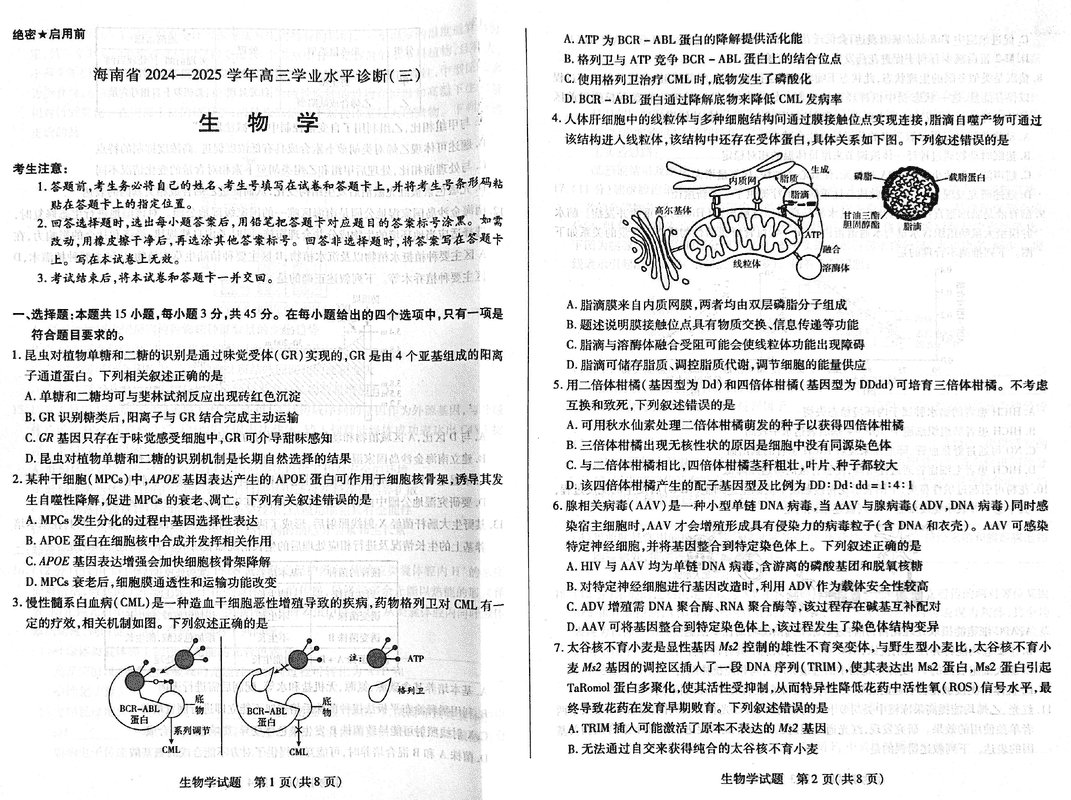 绝密★启用前
海南省 2024—2025 学年高三学业水平诊断(三)
生 物 学
考生注意:
1. 答题前,考生务必将自己的姓名、考生号填写在试卷和答题卡上,并将考生号条形码粘
贴在答题卡上的指定位置。
2. 回答选择题时,选出每小题答案后,用铅笔把答题卡对应题目的答案标号涂黑。如需
改动,用橡皮擦干净后,再选涂其他答案标号。回答非选择题时,将答案写在答题卡
上。写在本试卷上无效。
3. 考试结束后,将本试卷和答题卡一并交回。
一、选择题:本题共 15 小题,每小题 3 分,共 45 分。在每小题给出的四个选项中,只有一项是
符合题目要求的。
1. 昆虫对植物单糖和二糖的识别是通过味觉受体(GR)实现的,GR 是由 4 个亚基组成的阳离
子通道蛋白。下列相关叙述正确的是
A. 单糖和二糖均可与斐林试剂反应出现砖红色沉淀
B. GR 识别糖类后,阳离子与 GR 结合完成主动运输
C. GR 基因只存在于味觉感受细胞中,GR 可介导甜味感知
D. 昆虫对植物单糖和二糖的识别机制是长期自然选择的结果
2. 某种干细胞(MPCs)中,APOE 基因表达产生的 APOE 蛋白可作用于细胞核骨架,诱导其发
生自噬性降解,促进 MPCs 的衰老、凋亡。下列有关叙述错误的是
A. MPCs 发生分化的过程中基因选择性表达
B. APOE 蛋白在细胞核中合成并发挥相关作用
C. APOE 基因表达增强会加快细胞核骨架降解
D. MPCs 衰老后,细胞膜通透性和运输功能改变
3. 慢性髓系白血病(CML)是一种造血干细胞恶性增殖导致的疾病,药物格列卫对 CML 有一
定的疗效,相关机制如图。下列叙述正确的是
BCR-ABL
蛋白
底
物
系列调节
CML
BCR-ABL
蛋白
底
物
CML
注:
ATP
格列卫
生物学试题 第 1 页(共 8 页)
A. ATP 为 BCR-ABL 蛋白的降解提供活化能
B. 格列卫与 ATP 竞争 BCR-ABL 蛋白上的结合位点
C. 使用格列卫治疗 CML 时,底物发生了磷酸化
D. BCR-ABL 蛋白通过降解底物来降低 CML 发病率
4. 人体肝细胞中的线粒体与多种细胞结构间通过膜接触位点实现连接,脂滴自噬产物可通过
该结构进入线粒体,该结构中还存在受体蛋白,具体关系如下图。下列叙述错误的是
内质网
生成
脂滴
高尔基体
ATP
融合
溶酶体
线粒体
磷脂
载脂蛋白
甘油三酯
胆固醇酯
脂滴
A. 脂滴膜来自内质网膜,两者均由双层磷脂分子组成
B. 题述说明膜接触位点具有物质交换、信息传递等功能
C. 脂滴与溶酶体融合受阻可能会使线粒体功能出现障碍
D. 脂滴可储存脂质、调控脂质代谢,调节细胞的能量供应
5. 用二倍体柑橘(基因型为 Dd)和四倍体柑橘(基因型为 DDdd)可培育三倍体柑橘。不考虑
互换和致死,下列叙述错误的是
A. 可用秋水仙素处理二倍体柑橘萌发的种子以获得四倍体柑橘
B. 三倍体柑橘出现无核性状的原因是细胞中没有同源染色体
C. 与二倍体柑橘相比,四倍体柑橘茎秆粗壮,叶片、种子都较大
D. 该四倍体柑橘产生的配子基因型及比例为 DD∶Dd∶dd=1∶4∶1
6. 腺相关病毒(AAV)是一种小型单链 DNA 病毒,当 AAV 与腺病毒(ADV,DNA 病毒)同时感
染宿主细胞时,AAV 才会增殖形成具有侵染力的病毒粒子(含 DNA 和衣壳)。AAV 可感染
特定神经细胞,并将基因整合到特定染色体上。下列叙述正确的是
A. HIV 与 AAV 均为单链 DNA 病毒,含游离的磷酸基团和脱氧核糖
B. 对特定神经细胞进行基因改造时,利用 ADV 作为载体安全性较高
C. ADV 增殖需 DNA 聚合酶、RNA 聚合酶等,该过程存在碱基互补配对
D. AAV 可将基因整合到特定染色体上,该过程发生了染色体结构变异
7. 太谷核不育小麦是显性基因 Ms2 控制的雄性不育突变体,与野生型小麦比,太谷核不育小
麦 Ms2 基因的调控区插入了一段 DNA 序列(TRIM),使其表达出 Ms2 蛋白,Ms2 蛋白引起
TaRomol 蛋白多聚化,使其活性受抑制,从而特异性降低花药中活性氧(ROS)信号水平,最
终导致花药在发育早期败育。下列叙述错误的是
A. TRIM 插入可能激活了原本不表达的 Ms2 基因
B. 无法通过自交来获得纯合的太谷核不育小麦
生物学试题 第 2 页(共 8 页)